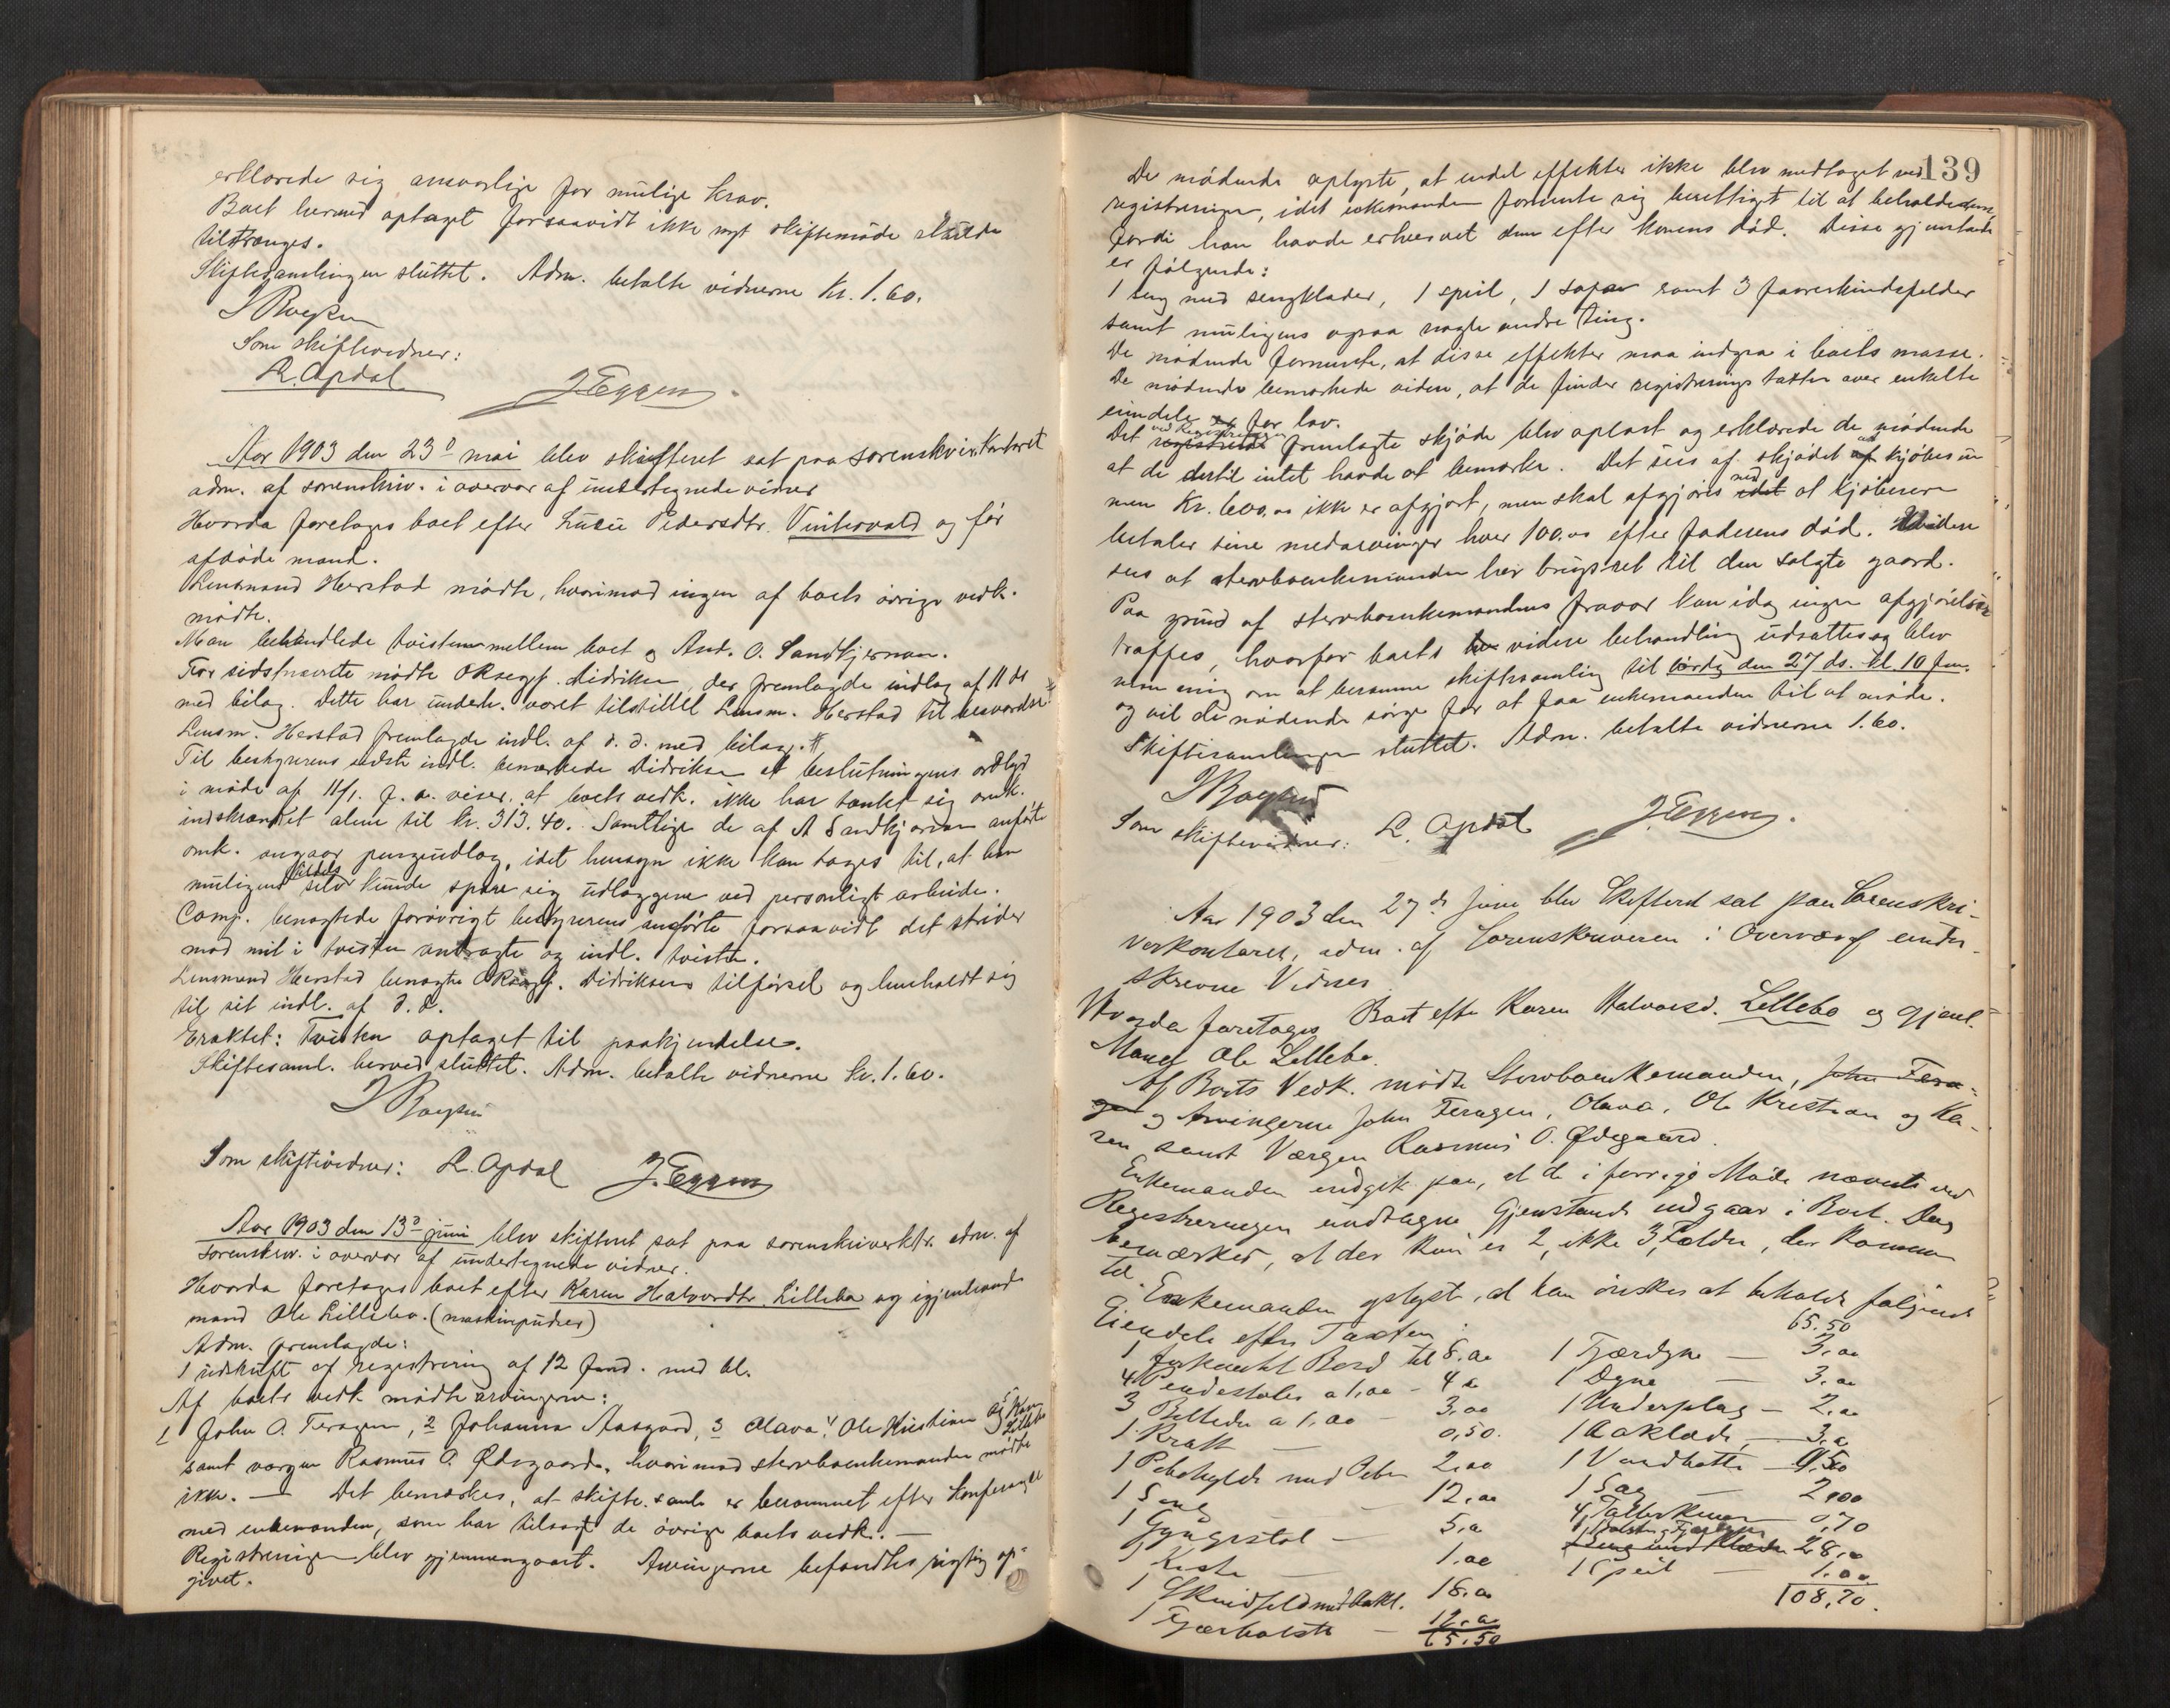 erklærede sig ansvarlige for mulige krav.
Boet hermed optaget forsaavidt ikke nyt skiftemøde skulde
tiltrænges.
Skiftesamlingen sluttet. Adm. betalte vidnerne Kr. 1.60.
Som skiftevidner:
R. Opdal J. Eggen
Aar 1903 den 23d mai blev skifteret sat paa sorenskriv.kontoret
adm. af sorenskriv. i overvær af undertegnede vidner
Hvorda foretoges boet efter Pedersdtr. Vintervold og før
afdøde mand.
Lensmand Herstad mødte, hvorimod ingen af boets øvrige vedk.
mødte.
Man behandlede tvisten mellem boet og And. O. Sandkjernan.
For sidstnævnte mødte Oksagf. Didriksen, der fremlagde indlæg af 11 ds
med bilag. Dette har underh. været tilstillet Lensm. Herstad til besvarelse
Lensm. Herstad fremlagde indl. af d. d. med bilag.
Til bestyrerens sidste indl. bemærkede Didriksen at beslutningens ordlyd
i møde af 11/1. f. a. viser, at boets vedk. ikke har tænkt sig omk.
indskrænket alene til kr. 313.40. Samtlige de af A Sandkjernan anførte
omk. angaar pengeudlæg, idet hensyn ikke kan tages til, at han
muligens tildels selv kunde spare sig udlæggene ved personligt arbeide.
Comp. benægtede forøvrigt bestyrerens anførte forsaavidt det strider
mod mit i tvisten antagte og indl. tvisten.
Lensmand Herstad benægter Oksagf. Didriksens tilførsel og henholdt sig
til sit indl. af d. d.
Eraktet: Tvisten optaget til paakjendelse.
Skiftesaml. herved sluttet. Adm. betalte vidnerne kr. 1.60.
Som skiftevidner: R. Opdal J. Eggen
Aar 1903 den 13d juni blev skifteret sat paa sorenskriverktr. adm. af
sorenskriv. i overvær af undertegnede vidner.
Hvorda foretoges boet efter Karen Halvordtr. Lillebo og igjenlevende
mand Ole Lillebo. (maskinpudser)
Adm. fremlagde:
1 udskrift af registrering af 12 med bl.
Af boets vedk. mødte arvingerne:
1 John O. Feragen, 2 Johanna Aasgaard, 3 Olava, 4 Ole Kristian og 5 Karen Lillebo
samt værgen Rasmus O. Ødegaard, hvorimod sterbboenkemanden mødte
ikke. — Det bemærkes, at skifte.saml. er berammet efter konferanse
med enkemanden, som har tilsagt de øvrige boets vedk. —
Registreringen blev gjennemgaaet. Arvingerne befandtes rigtig op-
givet.
139
De mødende oplyste, at endel effekter ikke blev medtaget ved
registreringen, idet enkemanden formente sig berettiget til at beholde dem,
fordi han havde erhvervet dem efter konens død. Disse gjenstande
er følgende:
1 seng med sengklæder, 1 speil, 1 sofa samt 3 faareskindsfelder
samt muligens ogsaa nogle andre ting.
De mødende formente, at disse effekter maa indgaa i boets masse.
De mødende bemærkede viden, at de finder registrerings taxten over enkelte
eiendele er for lav.
Det registrerede ved registreringen fremlagte skjøde blev oplæst og erklærede de mødende
at de dertil intet havde at bemærke. Det sees af skjødet at kjøbesum
men Kr. 600.00 ikke er afgjort, men skal afgjøres ved at kjøberen
betaler sine medarvinger hver 100.00 efter faderens død. Videre
sees at sterbboenkemanden har brugsret til den solgte gaard.
Paa grund af sterbboenkemandens fravær kan idag ingen afgjørelse
træffes, hvorfor boets videre behandling udsattes og blev
man enig om at beramme skiftesamling til lørdag den 27 ds. kl. 10 fm.
og vil de mødende sørge for at faa enkemanden til at møde.
Skiftesamlingen sluttet. Adm. betalte vidnerne 1.60.
Som skiftevidner: R. Opdal J. Eggen.
Aar 1903 den 27d juni blev Skifteret sat paa Sorenskri-
verkontoret, adm. af Sorenskriveren i Overvær af under-
skrevne Vidner
Hvorda foretoges Boet efter Karen Halvorsd. Lillebo og gjenl.
Mand Ole Lillebo.
Af Boets Vedk. mødte Sterboenkemanden, John Fera-
gen og Arvingerne John Feragen, Olava, Ole Kristian og Ka-
ren samt Værgen Rasmus O. Ødegaard.
Enkemanden indgik paa, at de i forrige Møde nævnte ved
Registreringen undtagne Gjenstande indgaar i Boet. Dog
bemærkes, at der kun er 2, ikke 3 Fælder, der kommer
til.
Enkemanden oplyste, at han ønsker at beholde følgende
Eiendele efter Taxten:
65.50
1 firkantet Bord til 8.00 1 Fjærdyne — 3.00
4 Pindestoler a 1.00 - 4.00 1 Dyne — 3.00
3 Billeder a 1.00 — 3.00 1 Underplag — 2.00
1 Krak — 0,50. 1 Aaklæde — 3.00
1 Pibehylde med Piber 2.00 1 Vandbøtte — 0,50
1 Seng — 12.00 1 Sag — 2,00
1 Gyngestol — 5.00 4 Tallerkener — 0,70
1 Kiste — 1.00 1 Seng med Klæder 28,00
1 Skindfeld med Aakl. 18.00 1 Speil — 1.00
1 Fjærbolster — 12.00 108,70.
65.50